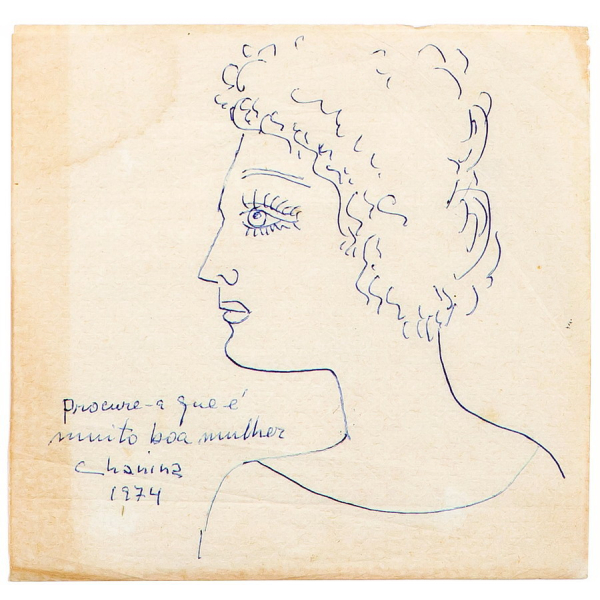 procure-a que é
muito boa mulher
Chanina
1974